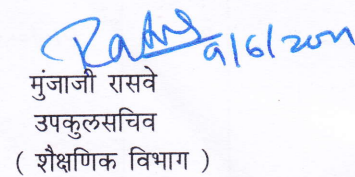 9/6/2011
मुंजाजी रासवे
उपकुलसचिव
( शैक्षणिक विभाग )